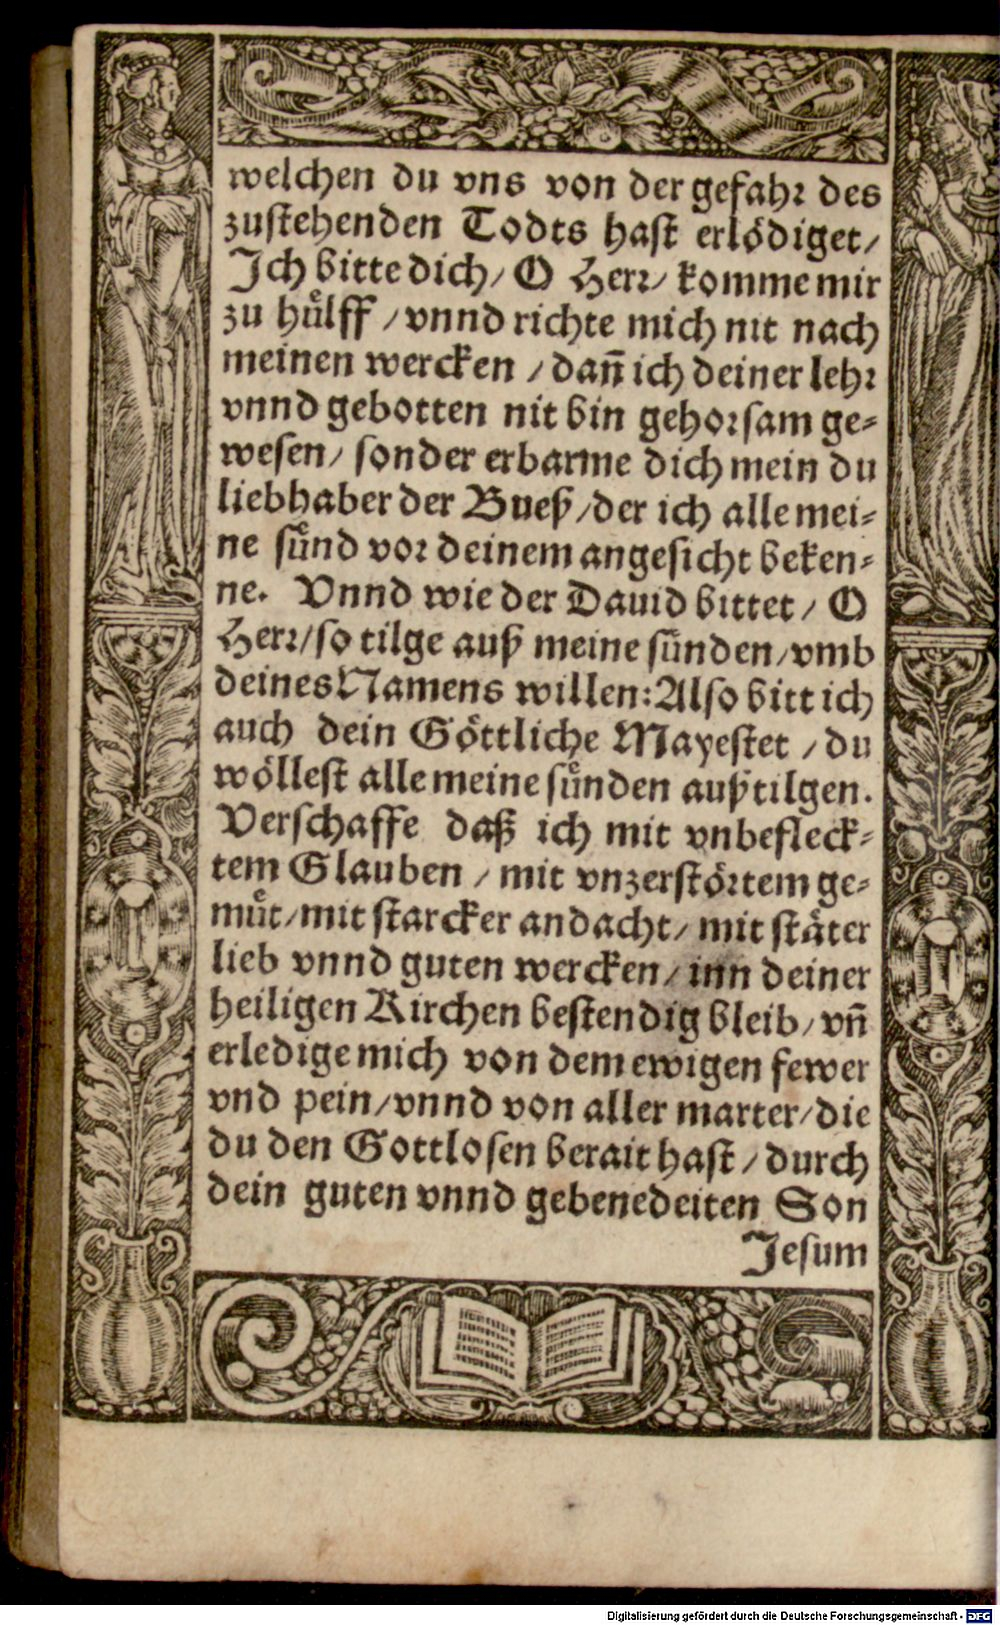 welchen du vns von der gefahr des
zustehenden Todts hast erlödiget/
Ich bitte dich/ O Herr/ komme mir
zu huͤlff / vnnd richte mich nit nach
meinen wercken / dañ ich deiner lehr
vnnd gebotten nit bin gehorsam ge-
wesen/ sonder erbarme dich mein du
liebhaber der Bueß /der ich alle mei-
ne suͤnd vor deinem angesicht beken-
ne. Vnnd wie der Dauid bittet / O
Herr/so tilge auß meine sünden/vmb
deines Namens willen: Also bitt ich
auch dein Göttliche Mayestet / du
wöllest alle meine suͤnden außtilgen.
Verschaffe daß ich mit vnbefleck-
tem Glauben / mit vnzerstörtem ge-
muͤt/mit starcker andacht/ mit stäter
lieb vnnd guten wercken/ inn deiner
heiligen Kirchen bestendig bleib/ vñ
erledige mich von dem ewigen fewer
vnd pein/vnnd von aller marter/die
du den Gottlosen berait hast / durch
dein guten vnnd gebenedeiten Son
Jesum
Digitalisierung gefördert durch die Deutsche Forschungsgemeinschaft - DFG